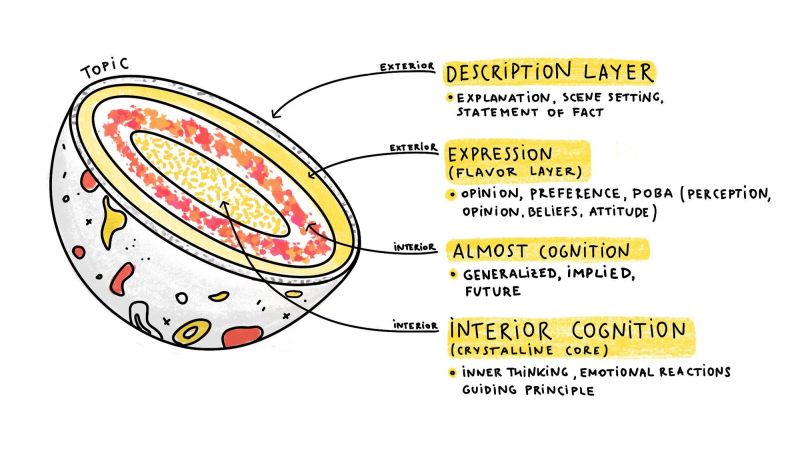 TOPIC
EXTERIOR
DESCRIPTION LAYER
• EXPLANATION, SCENE SETTING,
STATEMENT OF FACT
EXTERIOR
EXPRESSION
(FLAVOR LAYER)
• OPINION, PREFERENCE, POBA (PERCEPTION,
OPINION, BELIEFS, ATTITUDE)
INTERIOR
ALMOST COGNITION
• GENERALIZED, IMPLIED,
FUTURE
INTERIOR
INTERIOR COGNITION
(CRYSTALLINE CORE)
• INNER THINKING, EMOTIONAL REACTIONS
GUIDING PRINCIPLE